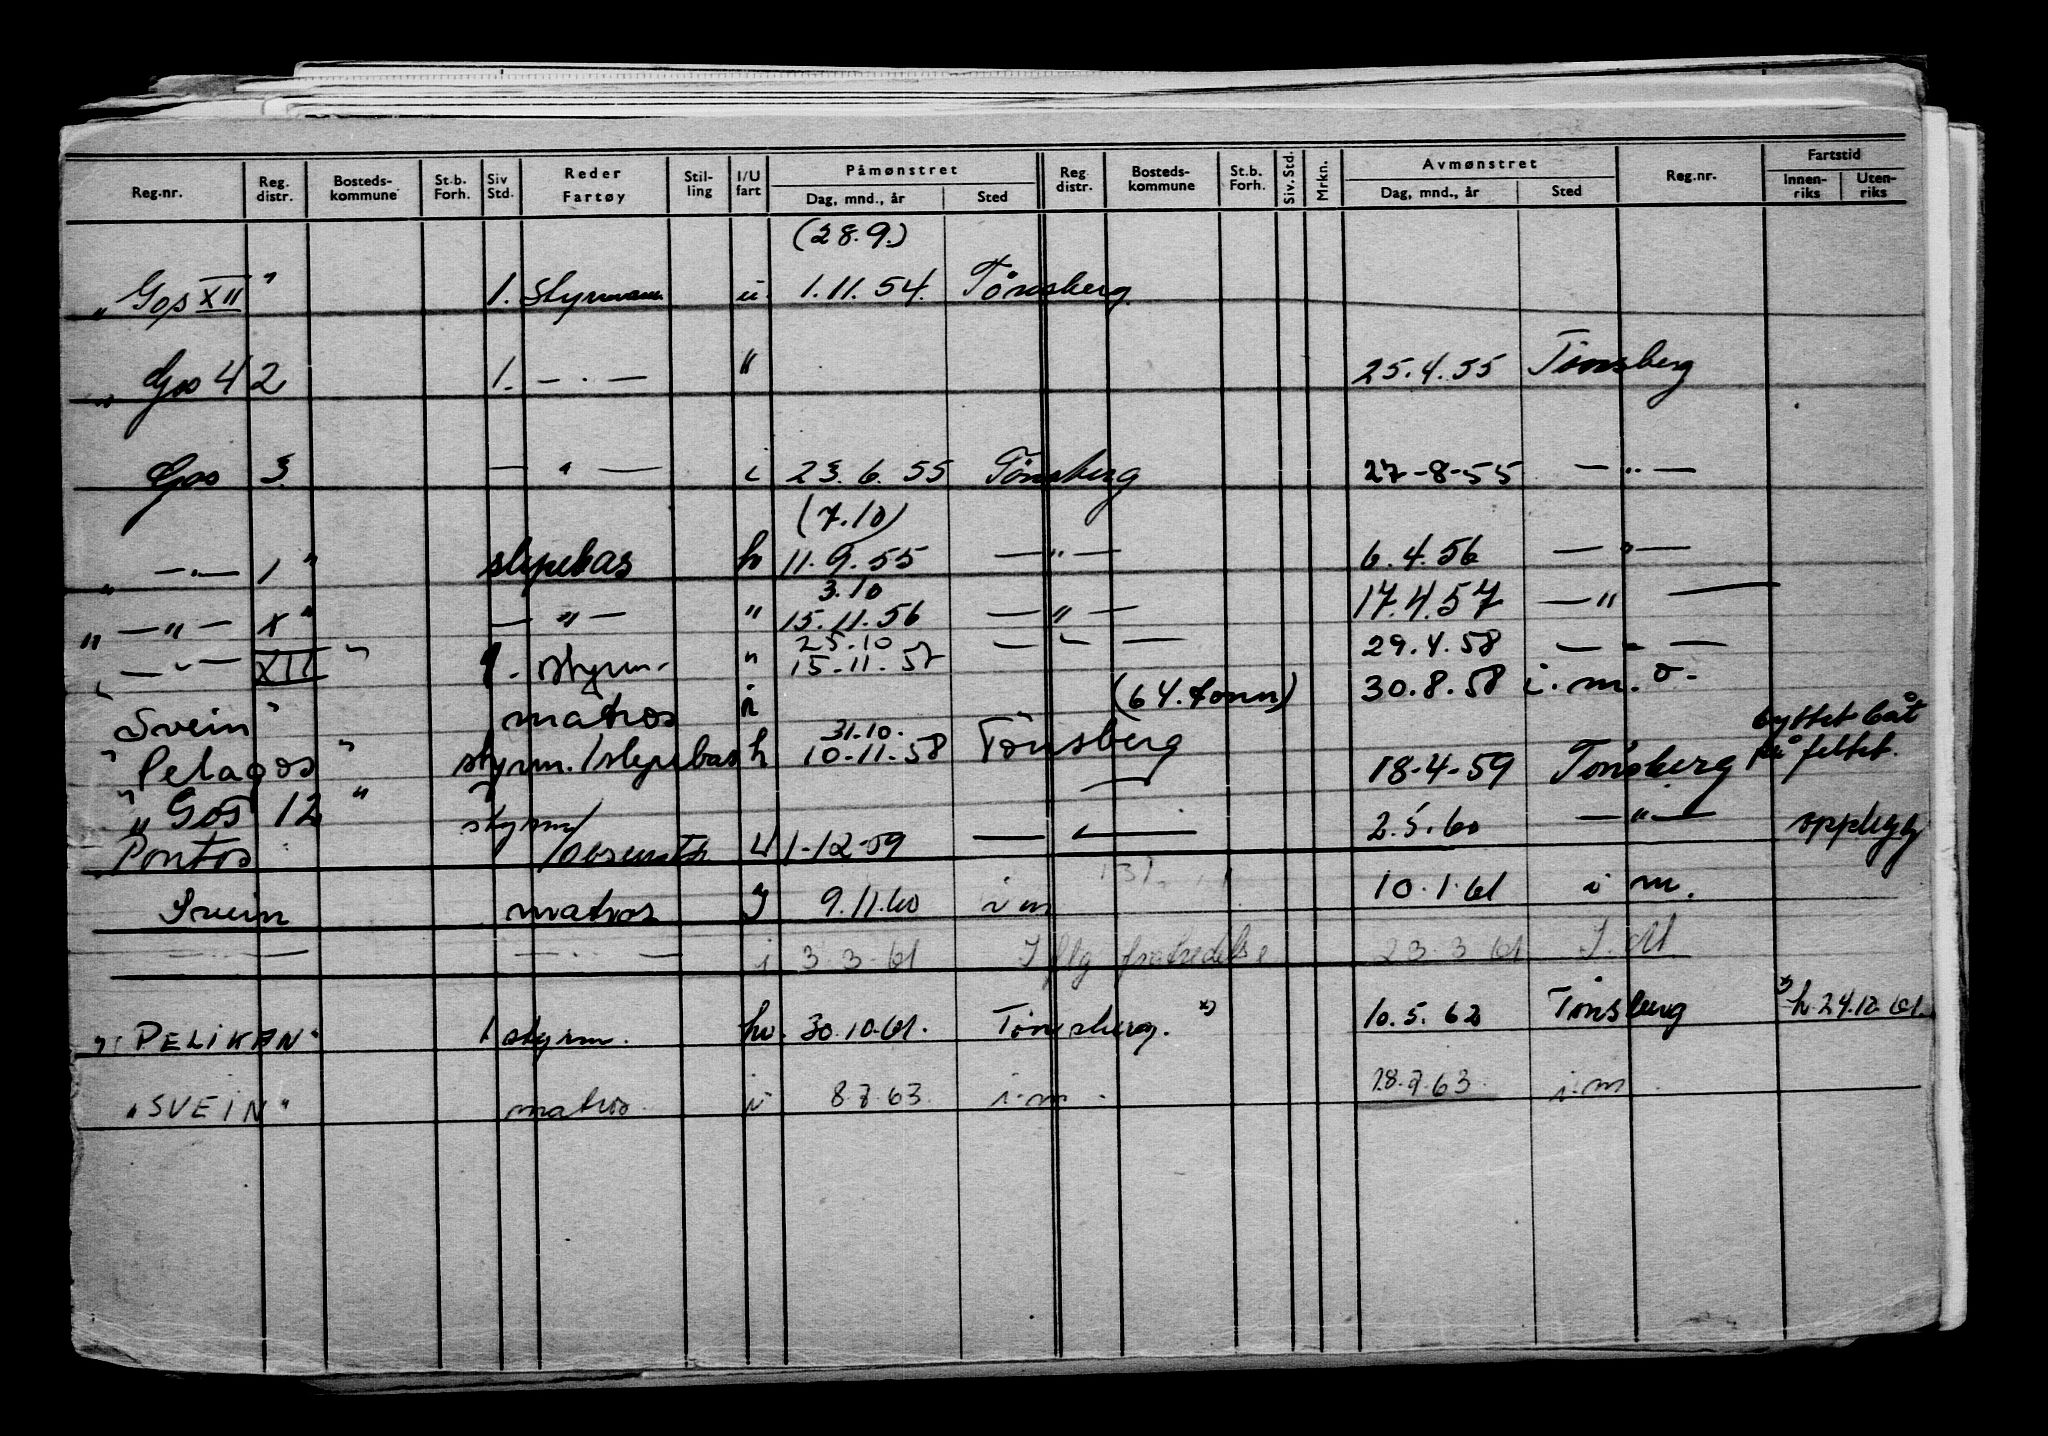 Reg.nr. Reg. distr. Bosteds-kommune St.b. Forh. Siv Std. Reder Fartøy Stil-ling I/U fart Påmønstret Dag, mnd., år Sted Reg distr. Bosteds-kommune St.b. Forh. Siv. Std. Mrkn. Avmønstret Dag, mnd., år Sted Reg.nr. Fartstid Innen-riks Uten-riks
(28.9.)
„Gos XII" 1. Styrmann u. 1.11.54. Tønsberg
„Gos 42 1. — . — " 25.4.55 Tønsberg
Gos 3 — " — i 23.6.55 Tønsberg 27-8-55 — " —
(7.10)
„ — " — 1 " skytebas h 11.9.55 — " — 6.4.56 — " —
3.10
„ — " — X " — " — " 15.11.56 — " — 17.4.57 — " —
25.10
— " — XII " 1. styrm. " 15-11-57 — " — 29.4.58 — " —
„Svein" matros i (64 tonn) 30.8.58 i. m. o.
31.10.
"Pelagos" styrm./ h 10-11-58 Tønsberg 18-4-59 Tønsberg byttet båt på feltet.
„Gos 12 "
Pontos styrm/ U 1-12-59 — " — 2.5.60 — " — opplegg
Svein matros I 9.11.60 i m 10.1.61 i m.
— " — — " — i 3.3.61 I flg fratredelse 23.3.61 I. M.
„PELIKAN" 1 styrm. hv. 30.10.61. Tønsberg. *) 10.5.62 Tønsberg *) h. 24.10.61.
„SVEIN" matros i 8 7 63. i. m. 28.7.63. i. m.